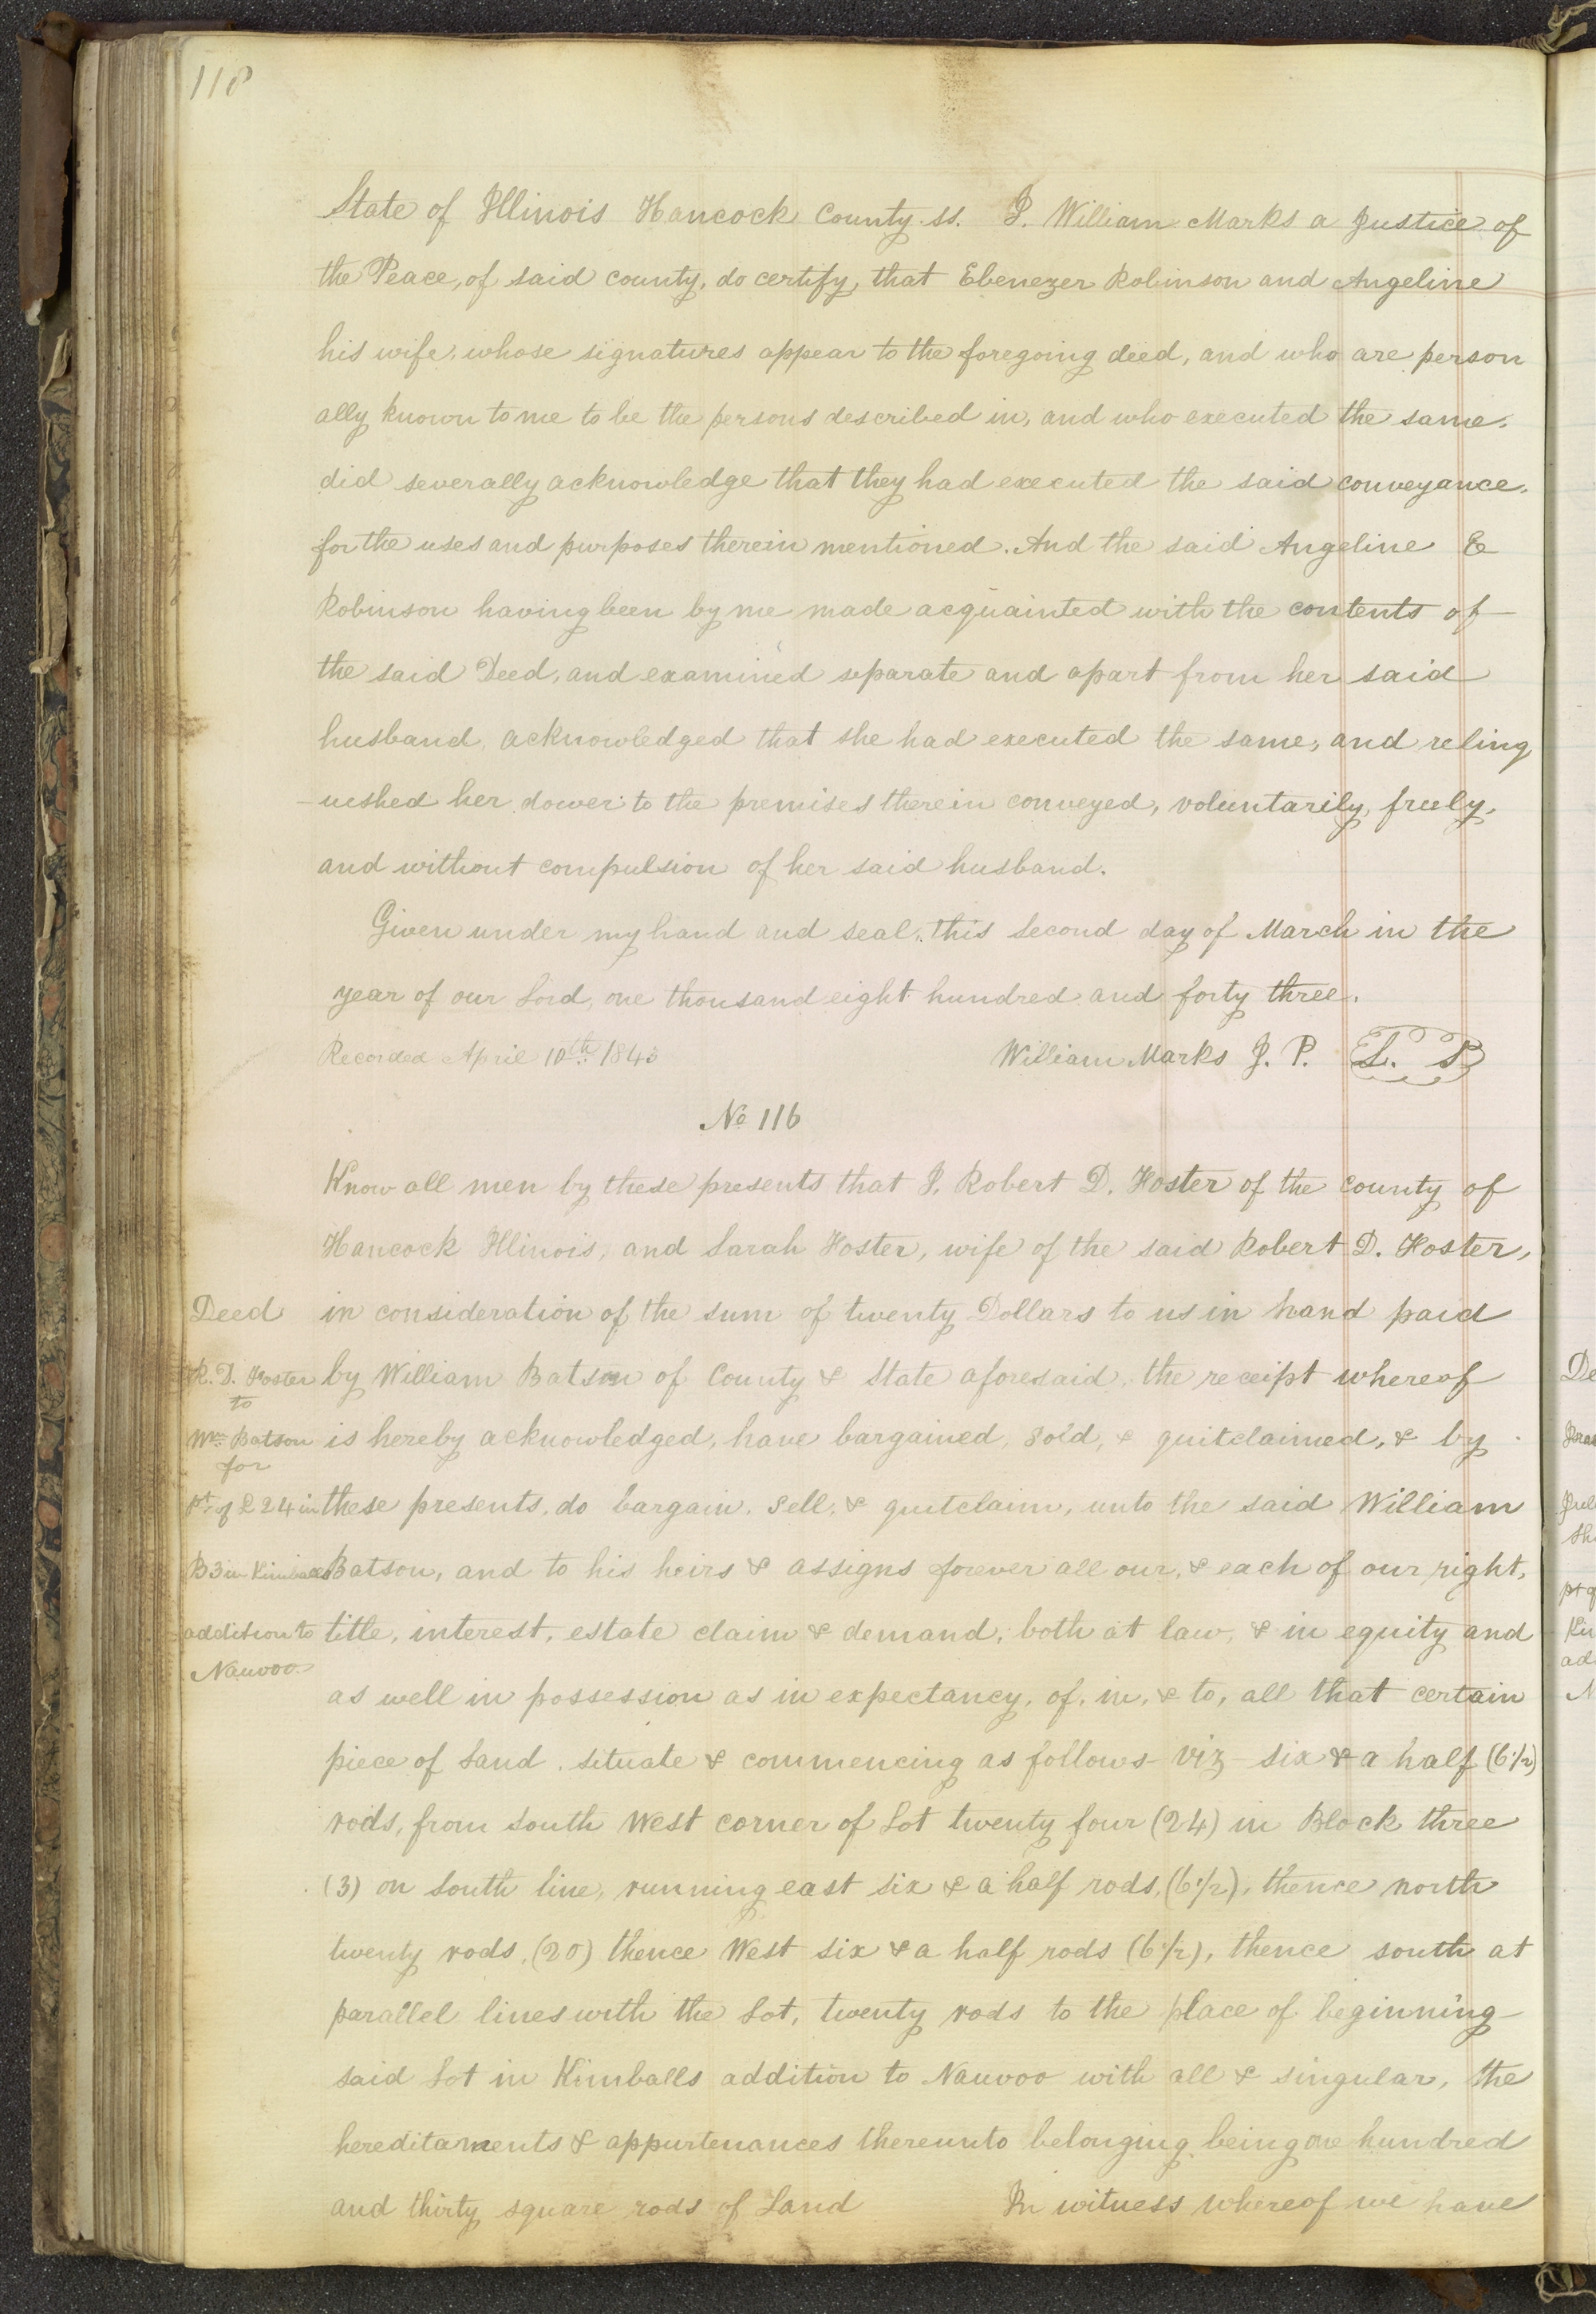 118
State of Illinois Hancock County ss. I. William Marks a Justice of
the Peace, of said county, do certify, that Ebenezer Robinson and Angeline
his wife, whose signatures appear to the foregoing deed, and who are person
ally known to me to be the persons described in, and who executed the same.
did severally acknowledge that they had executed the said conveyance.
for the uses and purposes therein mentioned. And the said Angeline E
Robinson having been by me made acquainted with the contents of
the said Deed, and examined separate and apart from her said
husband, acknowledged that she had executed the same, and relinq
-uished her dower to the premises therein conveyed, voluntarily, freely,
and without compulsion of her said husband.
Given under my hand and seal, this second day of March in the
year of our Lord, one thousand eight hundred and forty three.
Recorded April 10th 1843
William Marks J. P. L. S
No 116
Know all men by these presents that I, Robert D. Foster of the county of
Hancock Illinois, and Sarah Foster, wife of the said Robert D. Foster,
Deed
in consideration of the sum of twenty Dollars to us in hand paid
R. D. Foster
by William Batson of County & State aforesaid, the receipt whereof
to
Wm Batson
is hereby acknowledged, have bargained, sold, & quitclaimed, & by
for
pt of L 24 in
these presents, do bargain, sell, & quitclaim, unto the said William
B 3 in Kimballs
Batson, and to his heirs & assigns forever all our, & each of our right,
addition to
title, interest, estate claim & demand, both at law, & in equity and
Nauvoo
as well in possession as in expectancy, of, in, & to, all that certain
piece of Land, situate & commencing as follows viz - six & a half (6 1/2)
rods, from South West corner of Lot twenty four (24) in Block three
(3) on South line, running east six & a half rods, (6 1/2), thence north
twenty rods, (20) thence West six & a half rods (6 1/2), thence south at
parallel lines with the Lot, twenty rods to the place of beginning
said Lot in Kimballs addition to Nauvoo with all & singular, the
hereditaments & appurtenances thereunto belonging being one hundred
and thirty square rods of Land In witness whereof we have